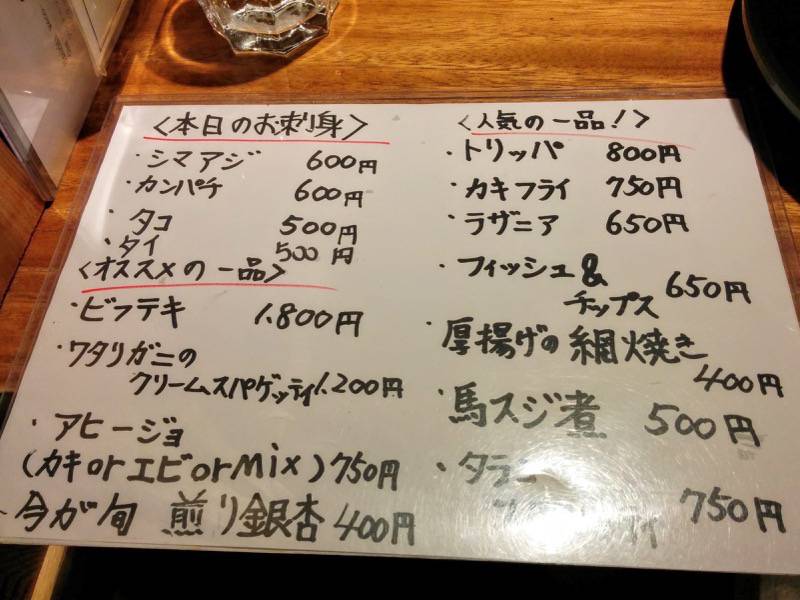 <本日のお刺身>
・シマアジ 600円
・カンパチ 600円
・タコ 500円
・タイ 500円
<オススメの一品>
・ビフテキ 1,800円
・ワタリガニの
クリームスパゲッティ 1,200円
・アヒージョ
(カキorエビorMix) 750円
・今が旬 煎り銀杏 400円
<人気の一品!>
・トリッパ 800円
・カキフライ 750円
・ラザニア 650円
・フィッシュ&
チップス 650円
・厚揚げの網焼き
400円
・馬スジ煮 500円
・タラコ
750円